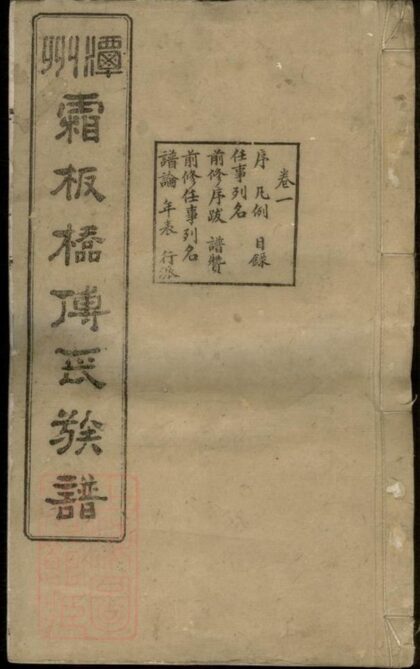 潭州
霜板橋傅氏族譜
卷一
序 凡例 目錄
任事列名
前修序跋 譜贊
前修任事列名
譜論 年表 行派